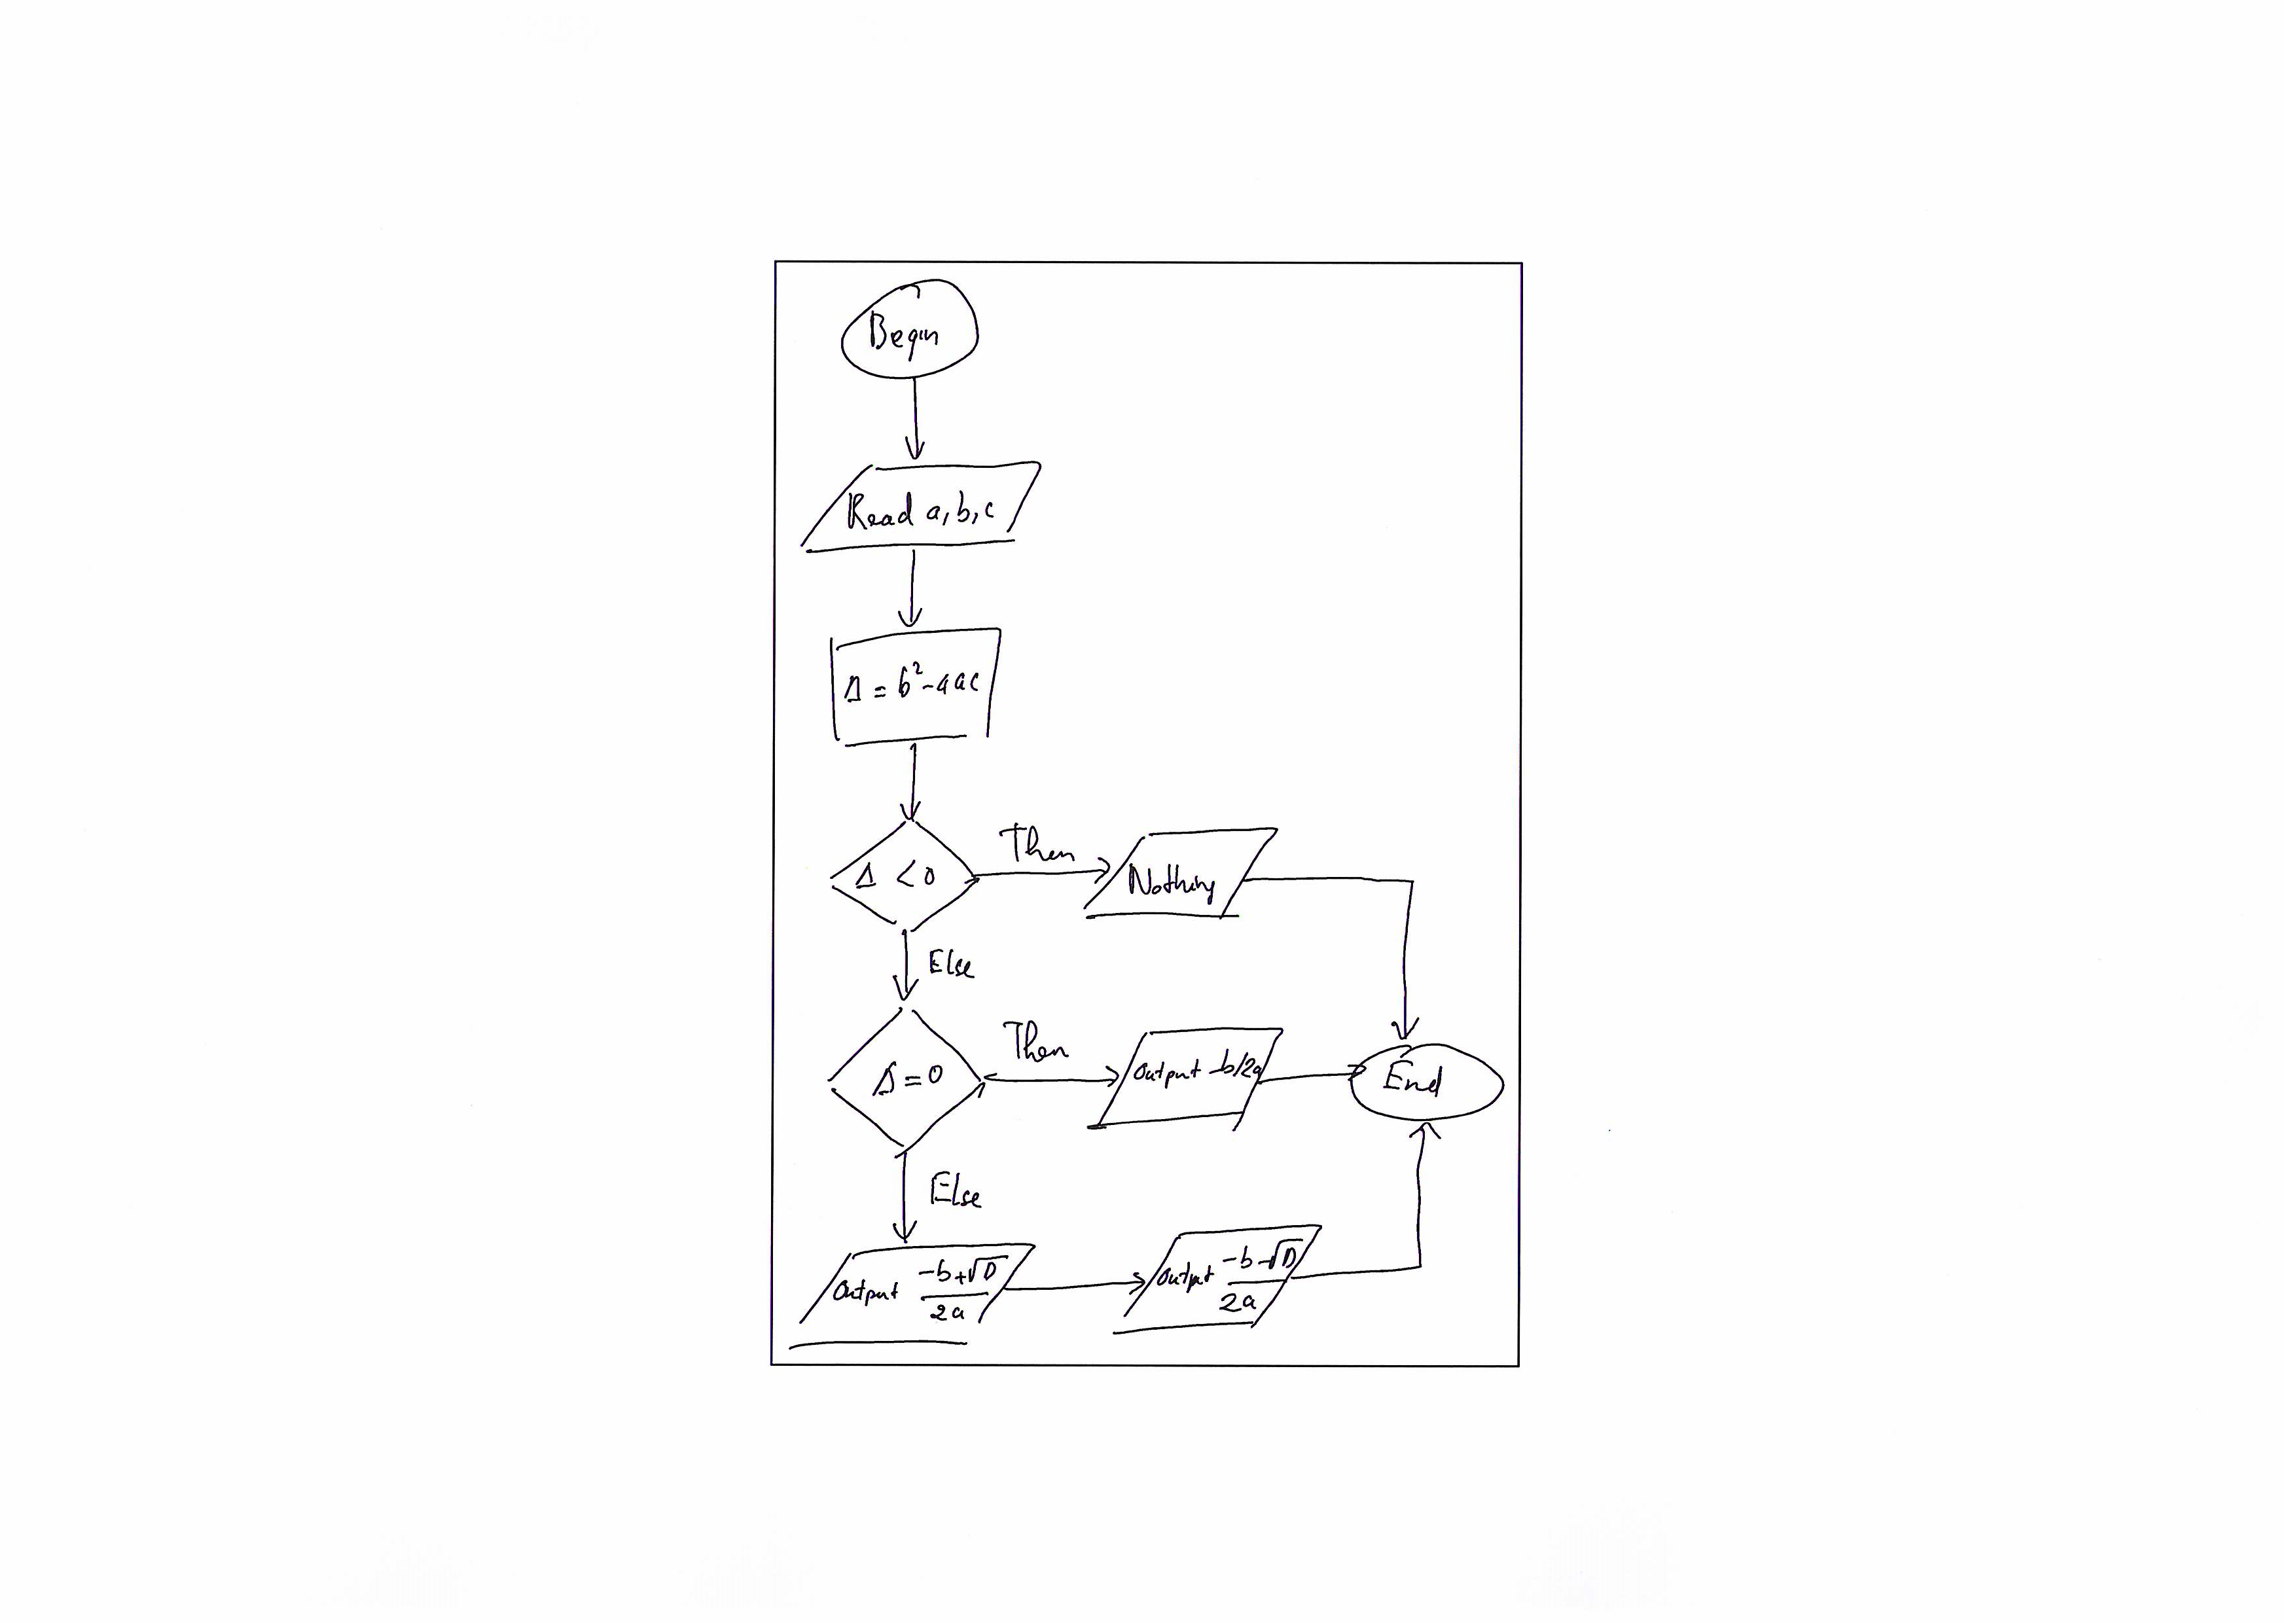 Begin
Read a, b, c
Δ = b² - 4ac
Δ < 0
Then
Nothing
Else
Δ = 0
Then
Output -b/2a
End
Else
Output (-b+√D)/2a
Output (-b-√D)/2a